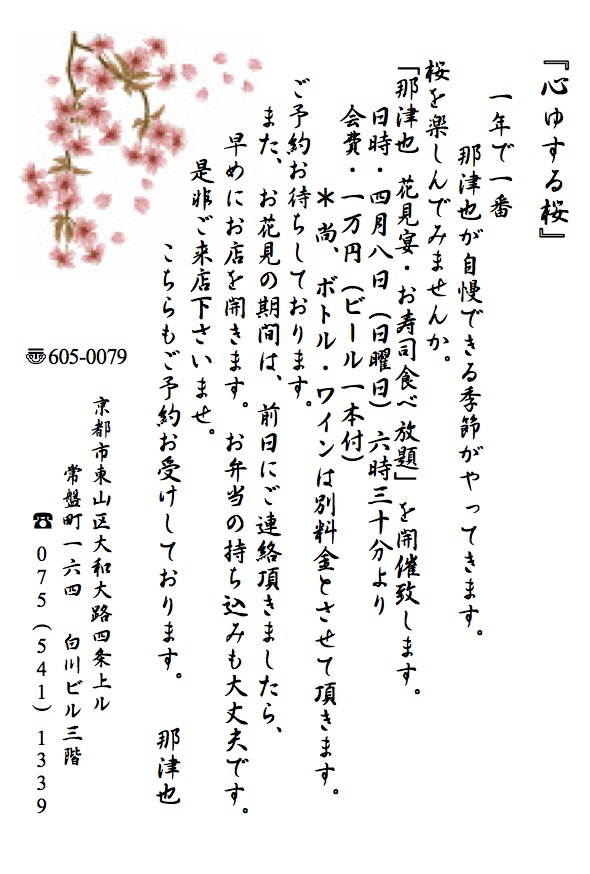 『心ゆする桜』
一年で一番
那津也が自慢できる季節がやってきます。
桜を楽しんでみませんか。
「那津也　花見宴・お寿司食べ放題」を開催致します。
日時・四月八日（日曜日）六時三十分より
会費・一万円（ビール一本付）
＊尚、ボトル・ワインは別料金とさせて頂きます。
ご予約お待ちしております。
また、お花見の期間は、前日にご連絡頂きましたら、
早めにお店を開きます。お弁当の持ち込みも大丈夫です。
是非ご来店下さいませ。
こちらもご予約お受けしております。　那津也
〠605-0079
京都市東山区大和大路四条上ル
常盤町一六四　白川ビル三階
☎075(541)1339